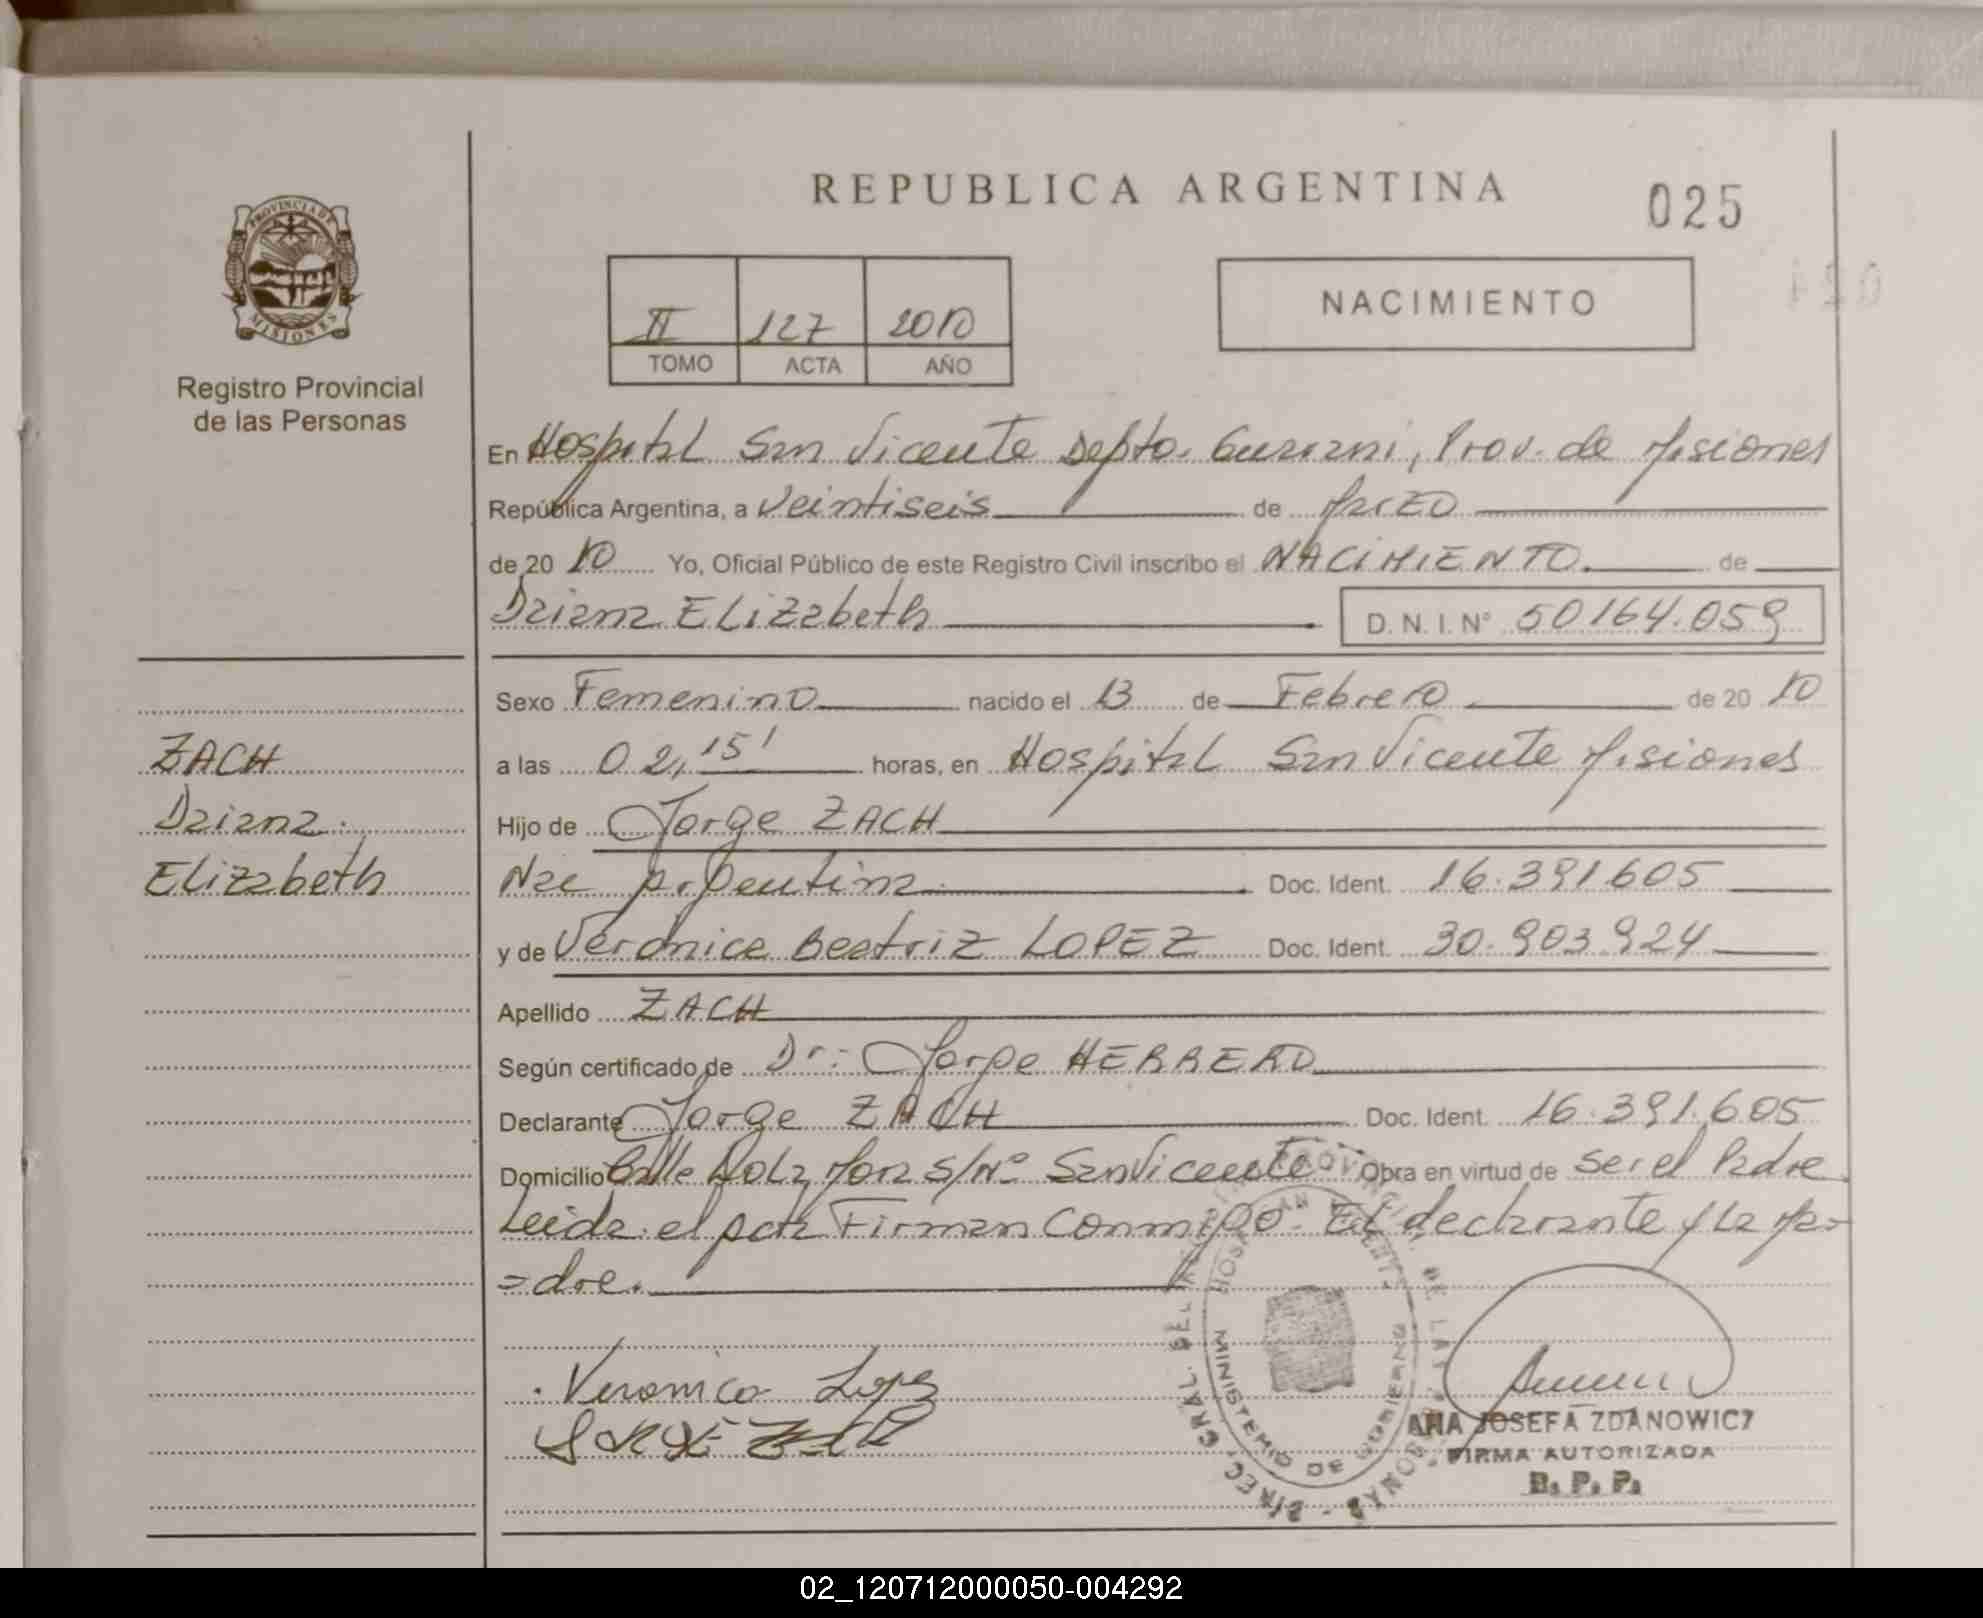 REPUBLICA ARGENTINA
025
PROVINCIA DE
MISIONES
Registro Provincial
de las Personas
II 127 2010
TOMO ACTA AÑO
NACIMIENTO
En Hospital San Vicente Depto. Guarani, Prov. de Misiones
República Argentina, a Veintiseis de Marzo
de 20 10 Yo, Oficial Público de este Registro Civil inscribo el NACIMIENTO. de
Daiana Elizabeth D.N.I. N° 50164.059
Sexo Femenino nacido el 13 de Febrero de 20 10
a las 02,15' horas, en Hospital San Vicente Misiones
Hijo de Jorge ZACH
Nac Argentina Doc. Ident. 16.391.605
y de Veronica Beatriz LOPEZ Doc. Ident. 30.903.924
Apellido ZACH
Según certificado de Dr: Jorge HERRERO
Declarante Jorge ZACH Doc. Ident. 16.391.605
Domicilio Calle S/N° San Vicente Obra en virtud de ser el Padre
Leida el acta Firman Conmigo El declarante y La Ma=
=dre.
ZACH
Daiana
Elizabeth
Veronica Lopez
ANA JOSEFA ZDANOWICZ
FIRMA AUTORIZADA
R. P. P.
HOSP. SAN VICENTE
MINISTERIO DE GOBIERNO
02_120712000050-004292